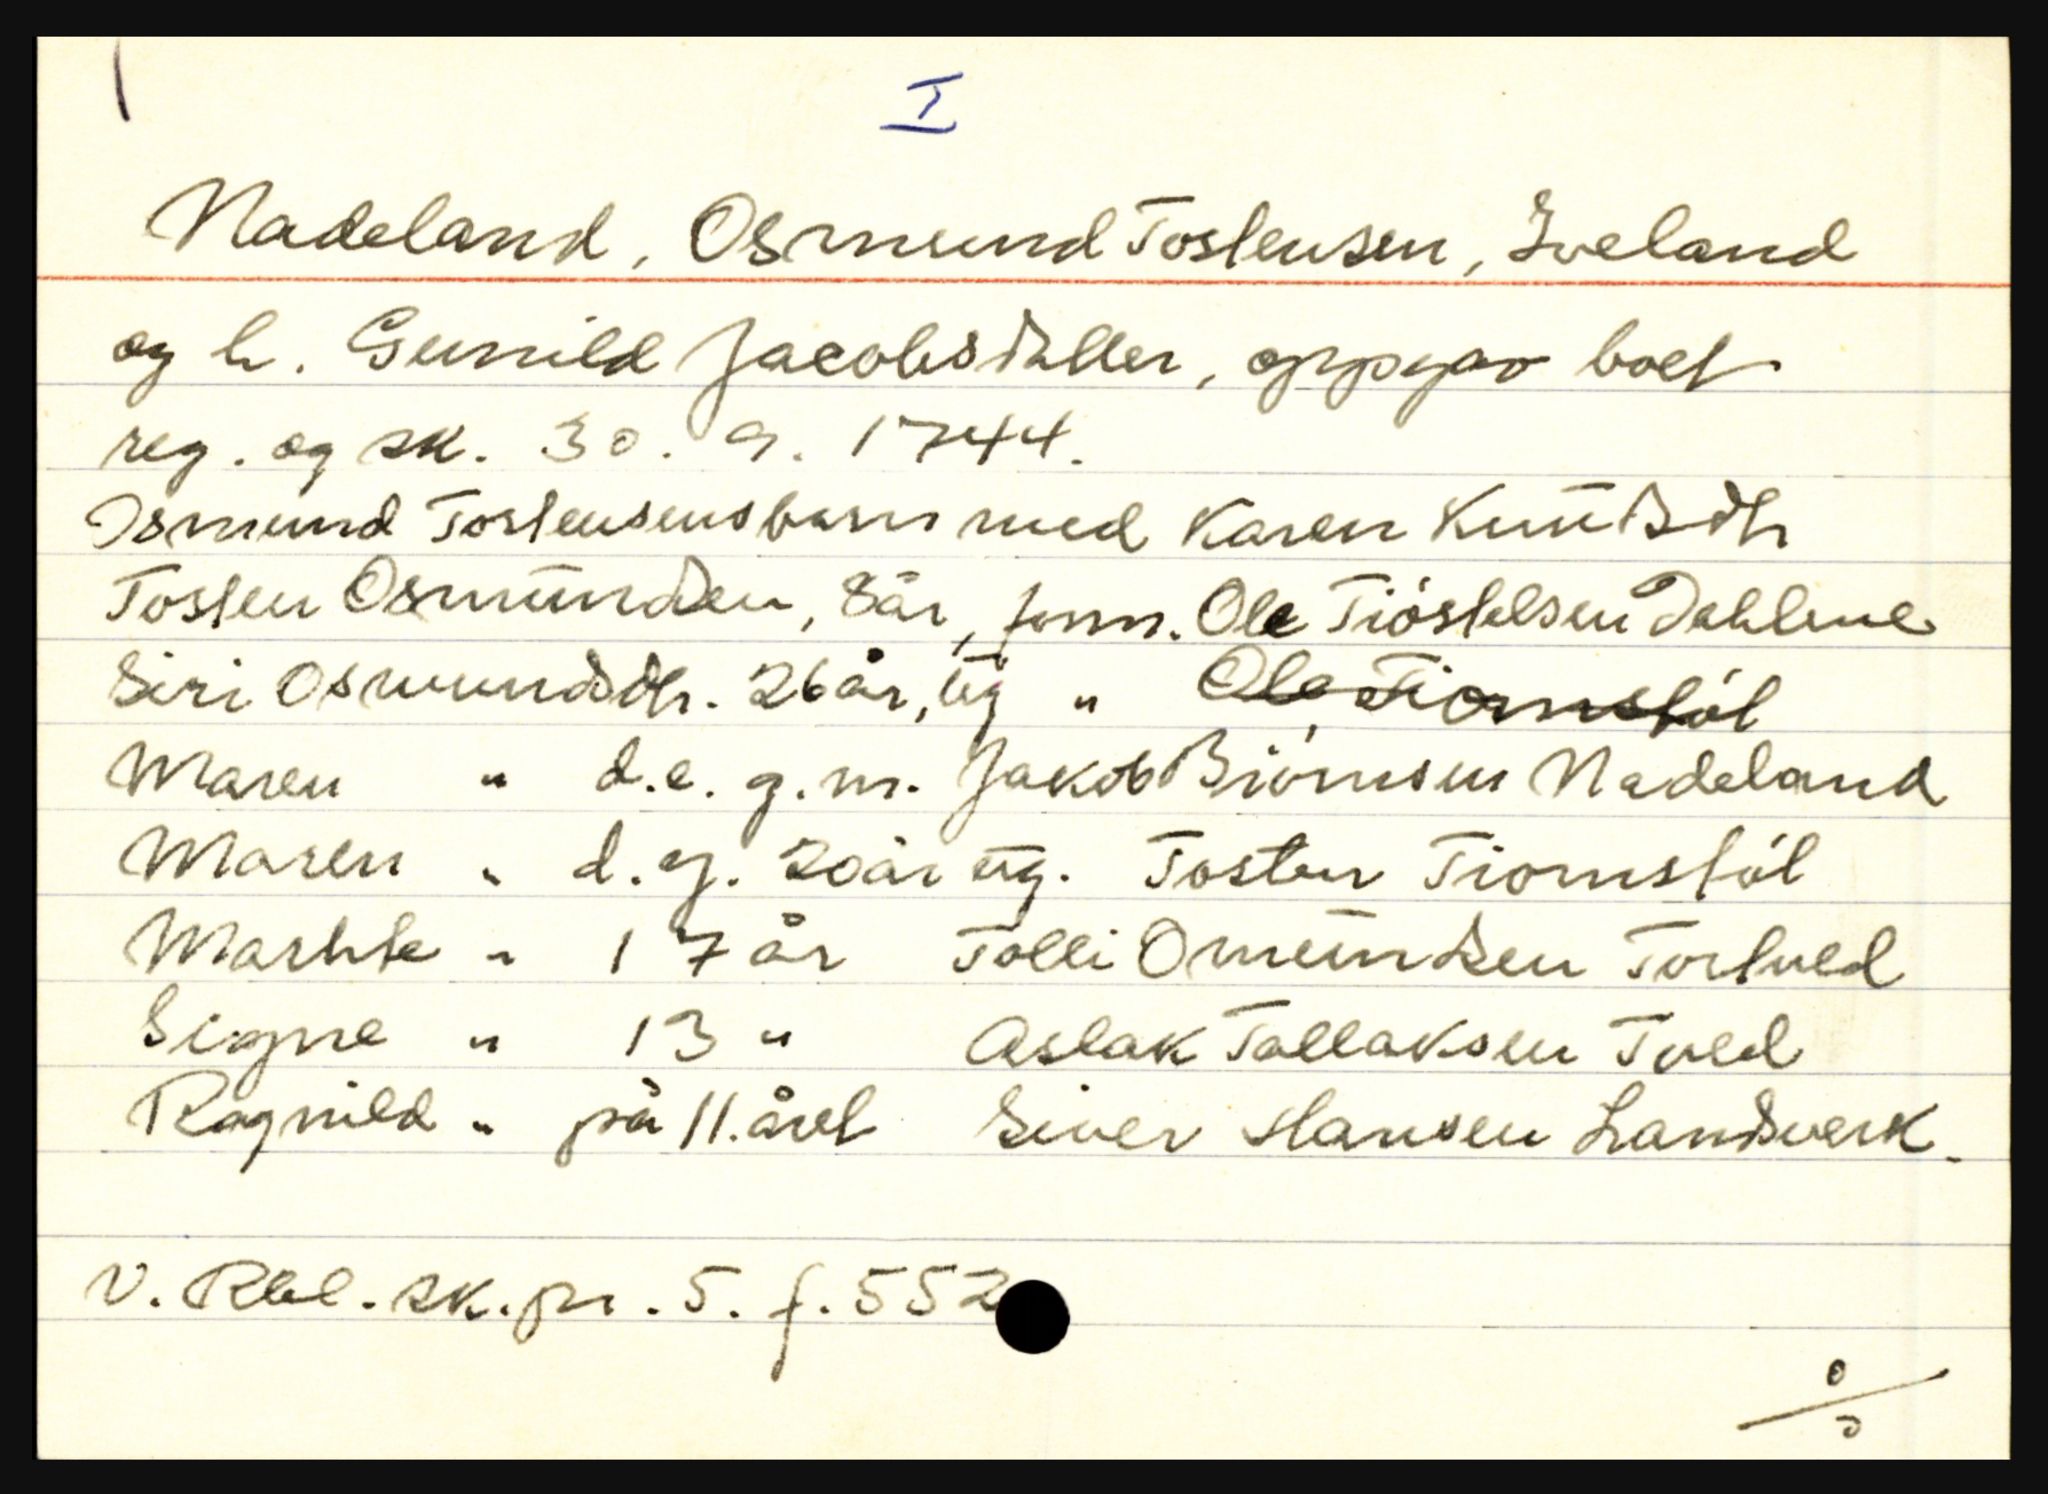 I
Nadeland, Osmund Tostensen, Iveland
og h. Gunild Jacobsdatter, oppgav boet
reg. og sk. 30. 9. 1744.
Osmund Tostensens barn med Karen Knüdsdtr
Tosten Osmündsen, 8 år, form. Ole Tióstelsen Dahlene
Siri Osmundsdtr. 26 år, üg " Ole Tiomstöl
Maren " d.e. g.m. Jakob Biörnsen Nadeland
Maren " d.y. 20 år üg. Tosten Tiomstöl
Marthe " 17 år Tolli Omündsen Tortved
Signe " 13 " Aslak Tallaksen Tved
Ragnild " på 11. året Siver Hansen Landsverk.
V. Rbl. sk. pr. 5. f. 552